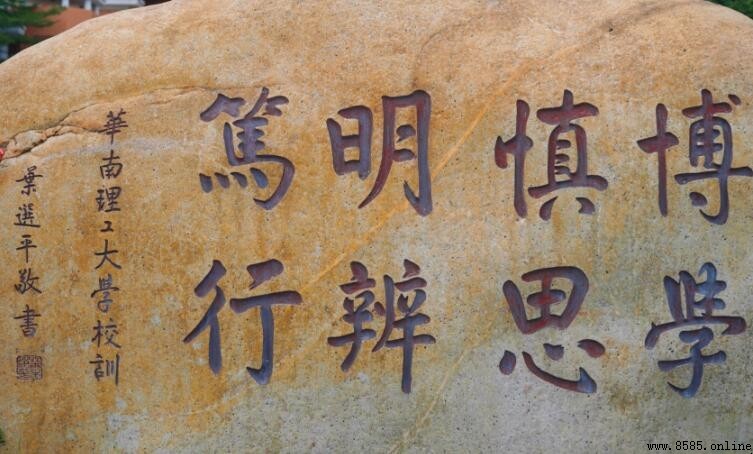 博學
慎思
明辨
篤行
華南理工大學校訓
葉選平敬書
www.8585.online